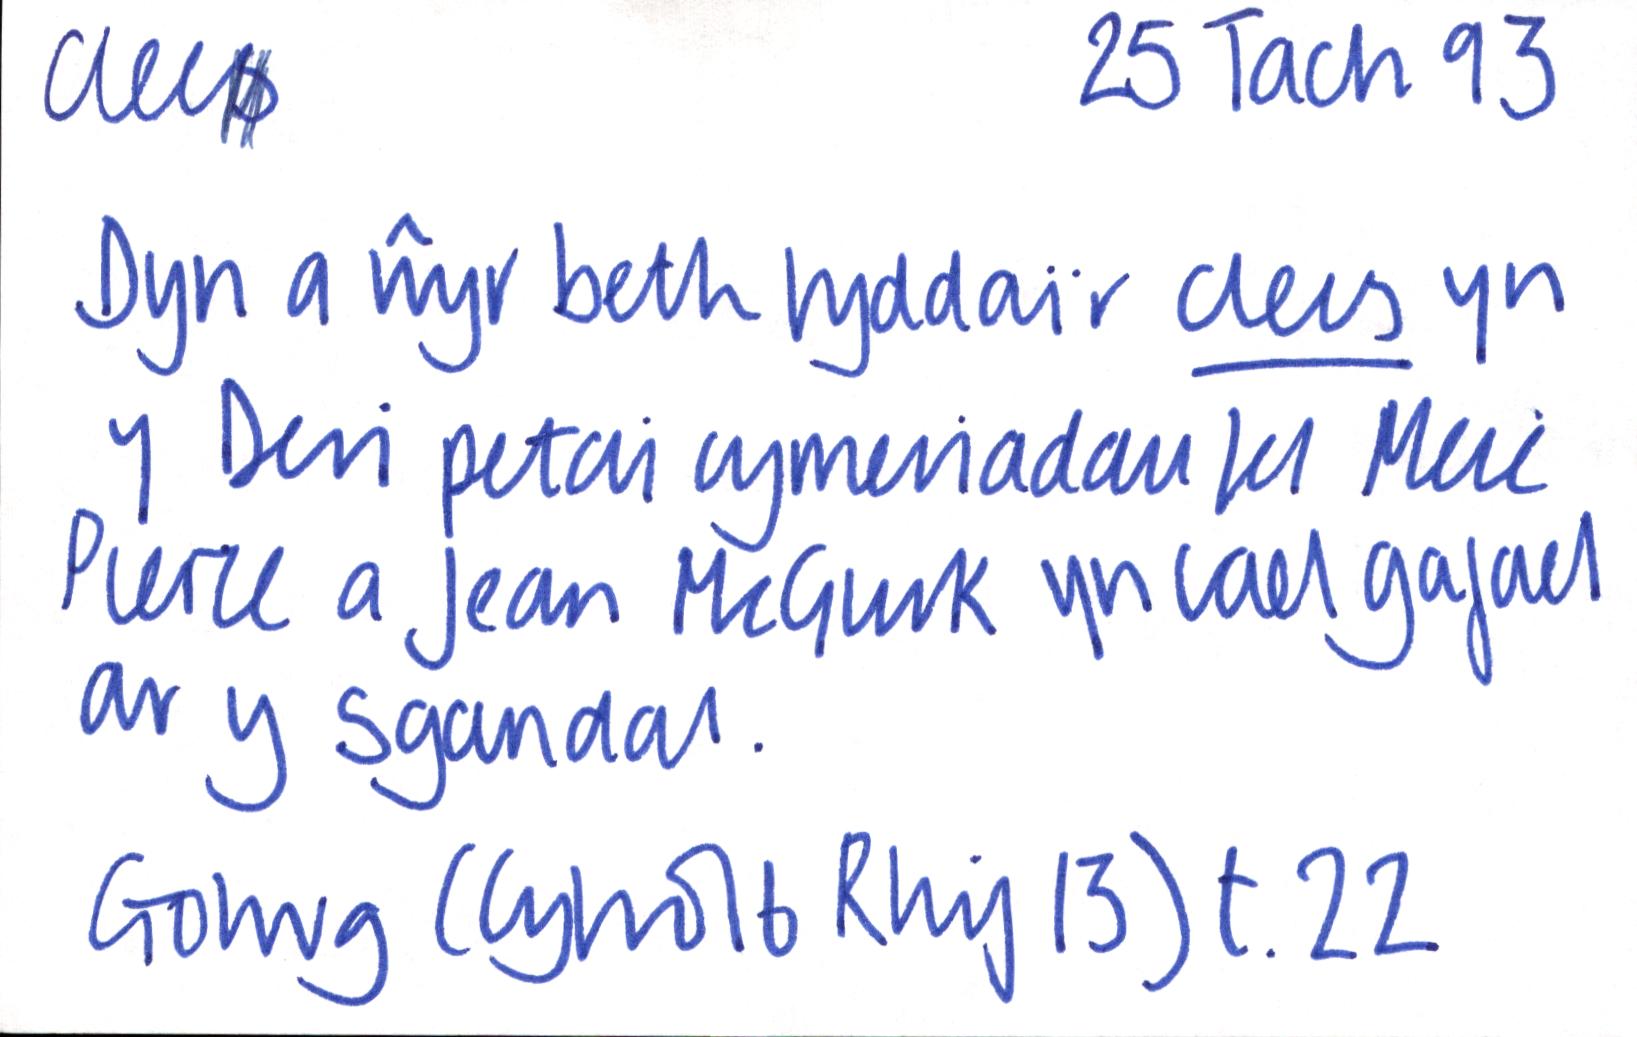 clecs 25 Tach 93
Dyn a ŵyr beth fyddai'r clecs yn
y Deri petai cymeriadau fel Meic
Pierce a Jean McGurk yn cael gafael
ar y sgandal.
Golwg (Cyfrol 6 Rhif 13) t. 22